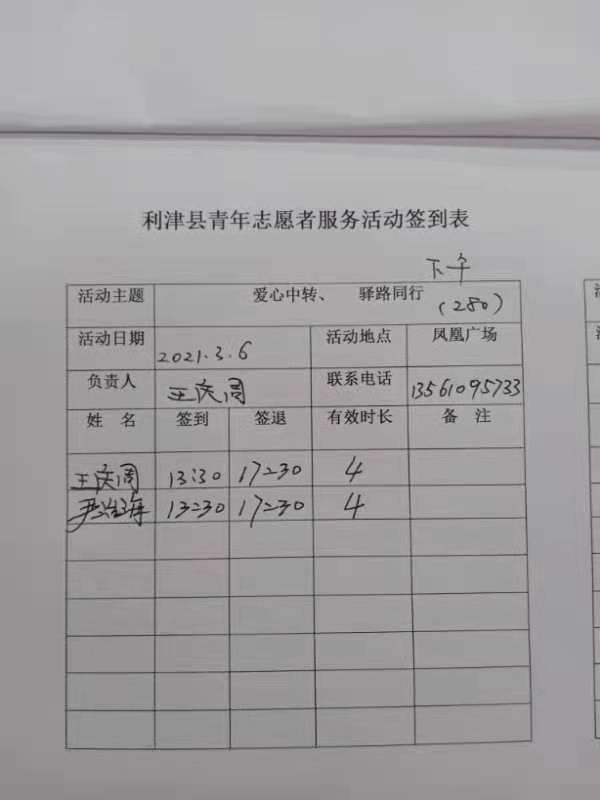 利津县青年志愿者服务活动签到表
下午
活动主题 爱心中转、 驿路同行 (280)
活动日期 2021.3.6 活动地点 凤凰广场
负责人 王庆周 联系电话 13561095733
姓 名 签到 签退 有效时长 备 注
王庆周 13:30 17:30 4
13:30 17:30 4